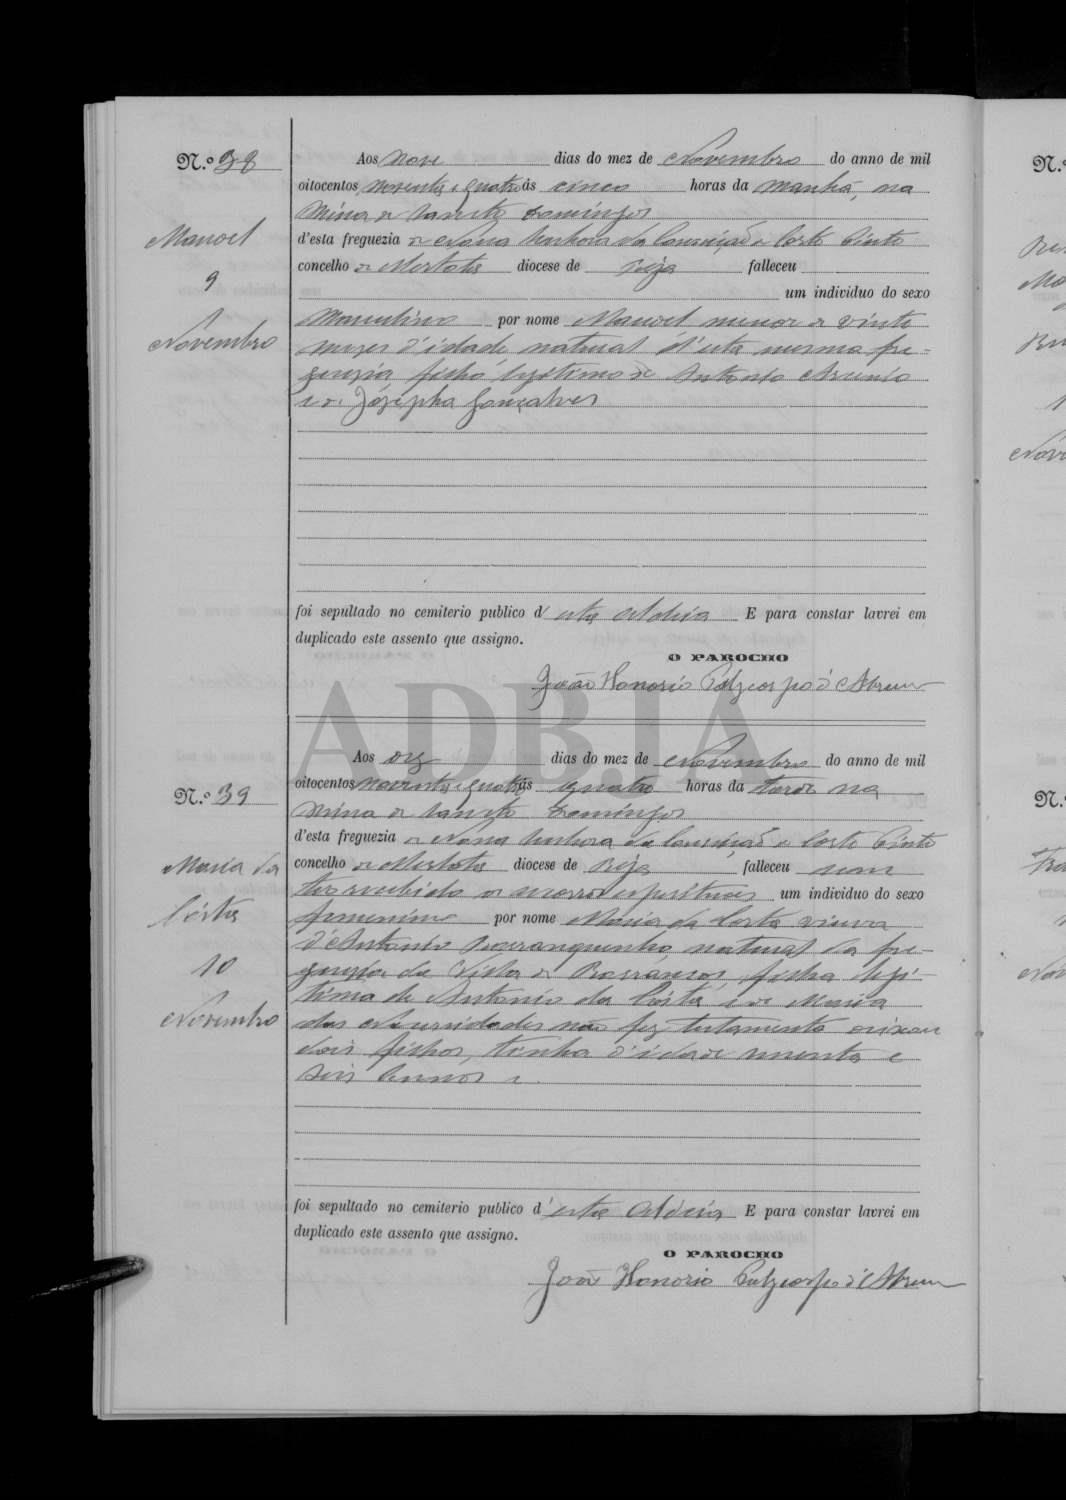 N.º 38
Aos nove dias do mez de Novembro do anno de mil
oitocentos noventa e quatro ás cinco horas da manhã, na
Mina de Sancto Domingos
d'esta freguezia de Nossa Senhora da Conceição de Corte Pinto
concelho de Mertola diocese de Beja falleceu
um individuo do sexo
Masculino por nome Manoel menor de vinte
mezes d'idade natural d'esta mesma fre-
guezia filho legitimo de Antonio
e de Josepha Gonçalves
foi sepultado no cemiterio publico d'esta Aldeia E para constar lavrei em
duplicado este assento que assigno.
O PAROCHO
João Honorio d'Abreu
Manoel
9
Novembro
ADBJA
N.º 39
Aos dez dias do mez de Novembro do anno de mil
oitocentos noventa e quatro ás quatro horas da tarde na
Mina de Sancto Domingos
d'esta freguezia de Nossa Senhora da Conceição de Corte Pinto
concelho de Mertola diocese de Beja falleceu sem
ter recebido os soccorros espirituaes um individuo do sexo
femenino por nome Maria da Costa viuva
d'Antonio Barranquenho, natural da fre-
guezia da Villa de Barrancos, filha legi-
tima de Antonio da Costa e de Maria
das Necessidades não fez testamento deixou
dois filhos, tinha d'idade
seis annos e
foi sepultado no cemiterio publico d'esta Aldeia E para constar lavrei em
duplicado este assento que assigno.
O PAROCHO
João Honorio d'Abreu
Maria da
Costa
10
Novembro
N.º
N.º